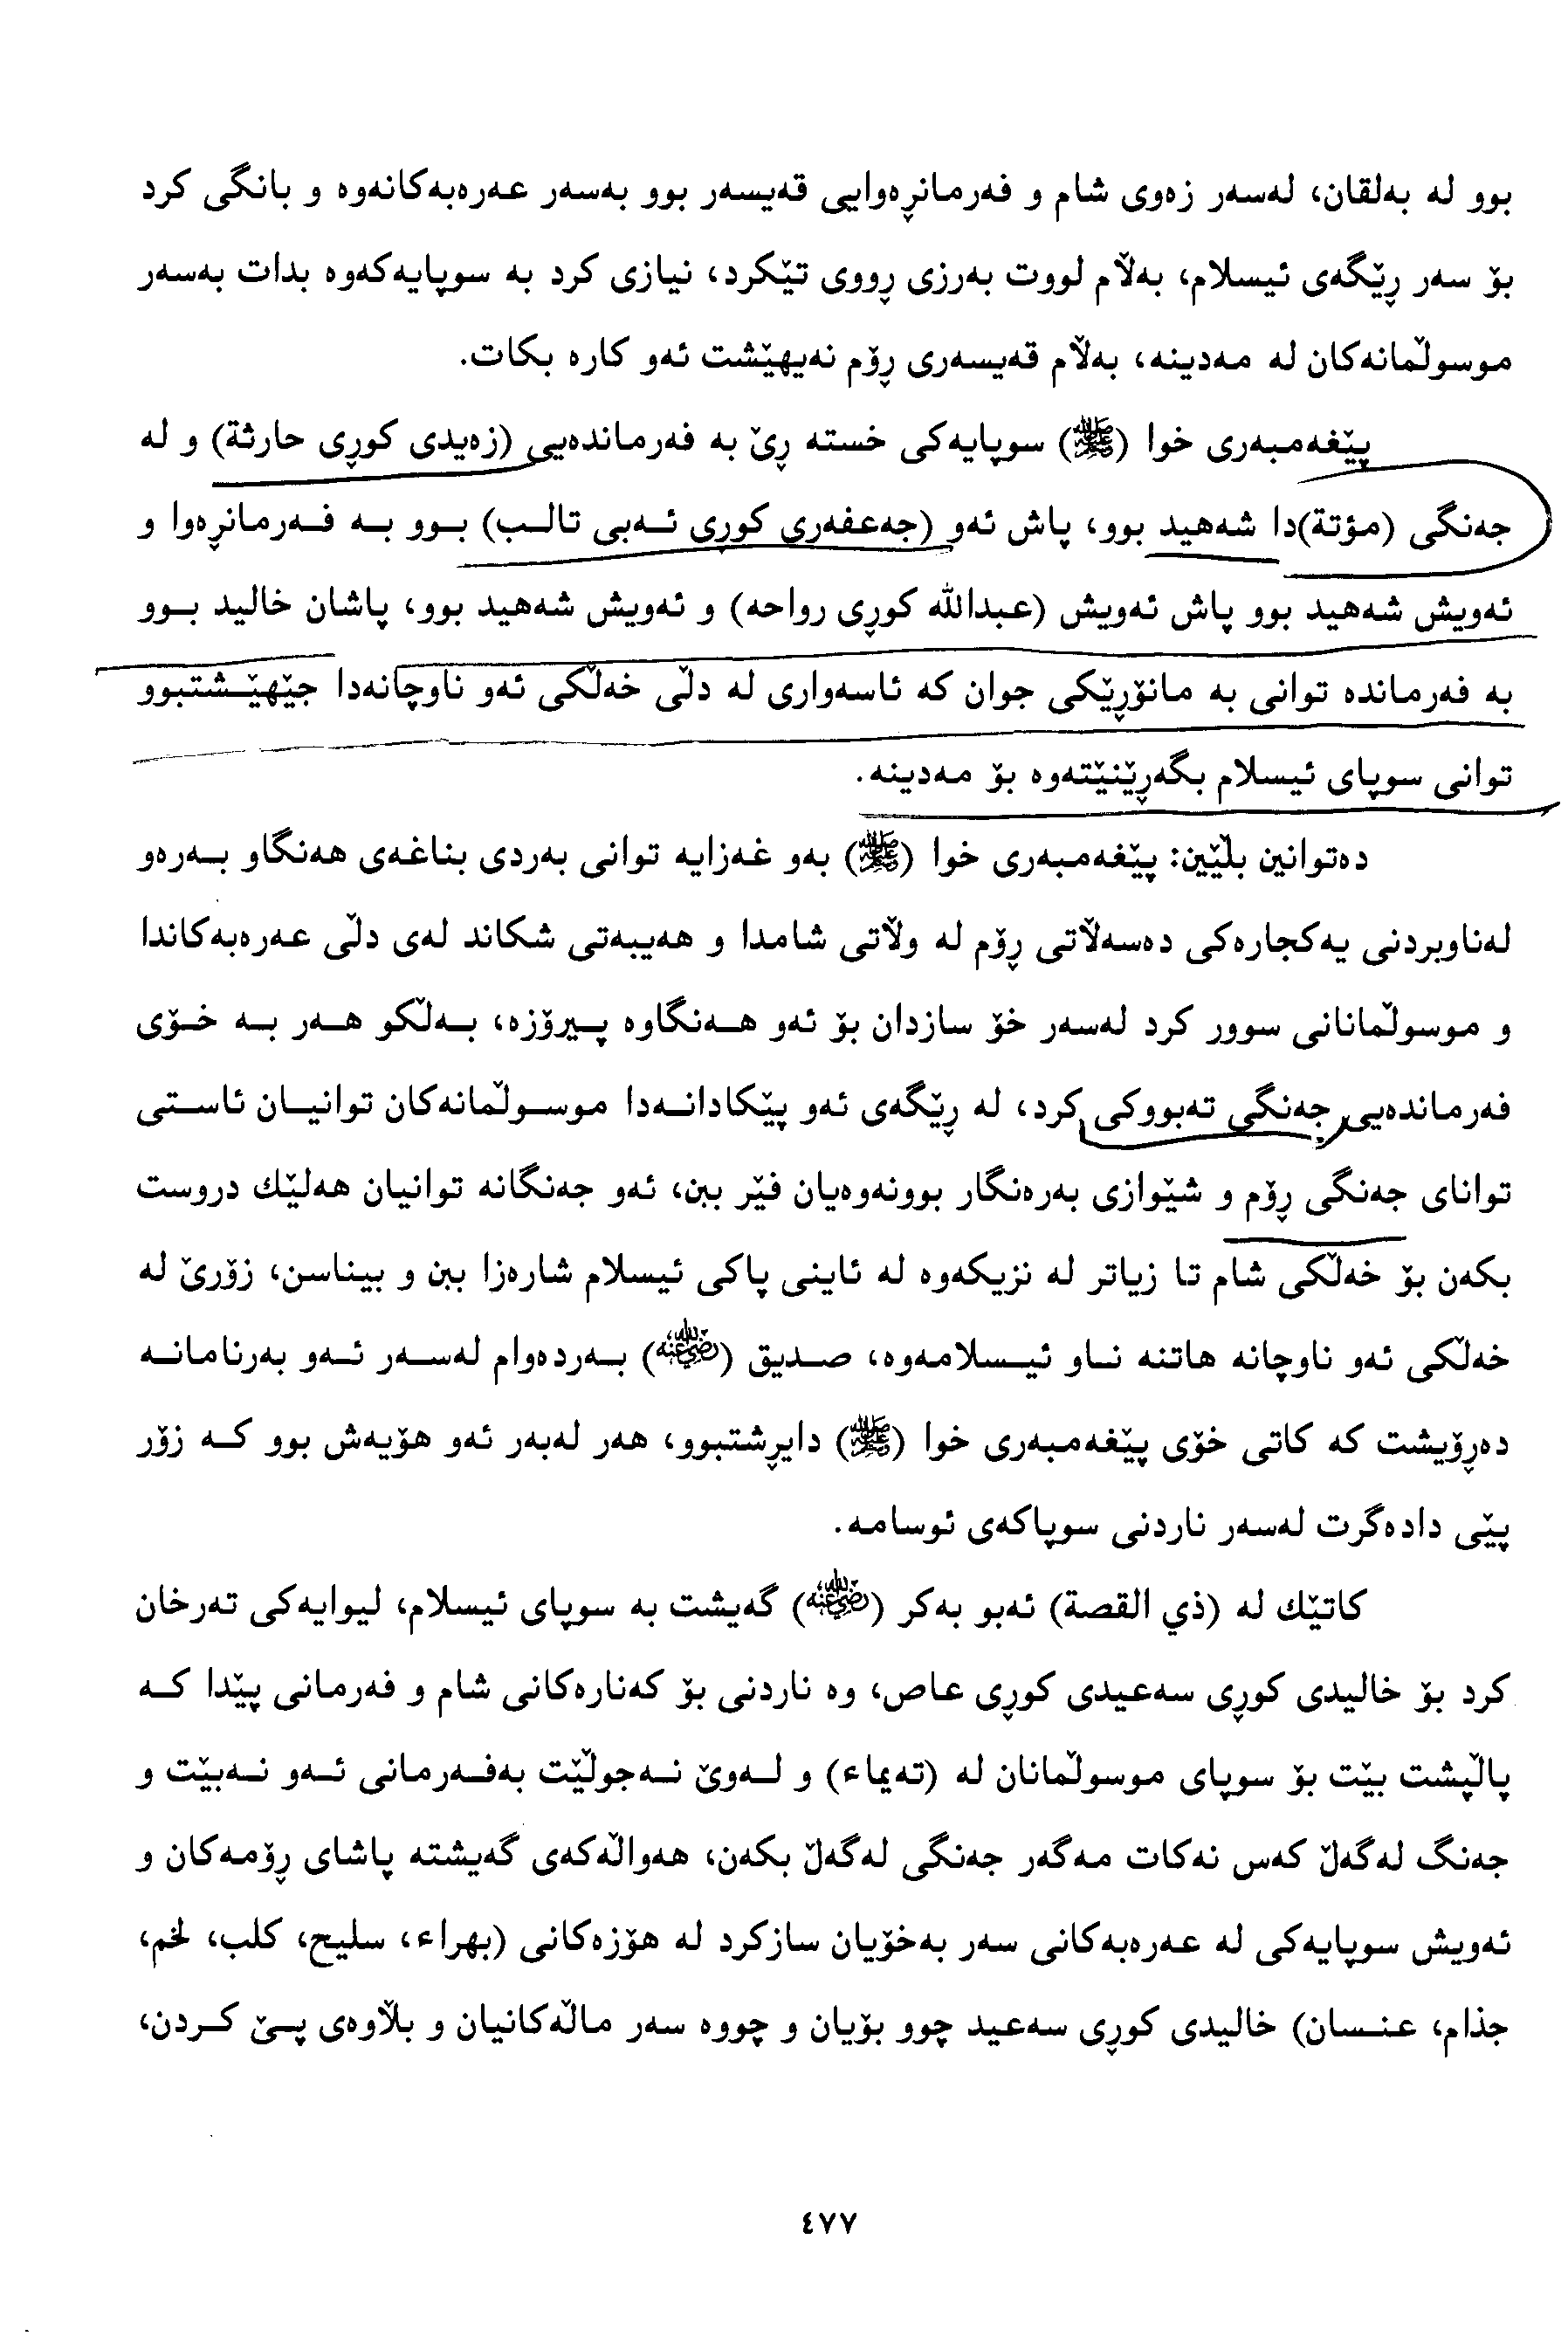 بوو لە بەلقان، لەسەر زەوی شام و فەرمانڕەوایی قەیسەر بوو بەسەر عەرەبەکانەوە و بانگی کرد
بۆ سەر ڕێگەی ئیسلام، بەڵام لووت بەرزی ڕووی تێکرد، نیازی کرد بە سوپایەکەوە بدات بەسەر
موسوڵمانەکان لە مەدینە، بەڵام قەیسەری ڕۆم نەیهێشت ئەو کارە بکات.
پێغەمبەری خوا (ﷺ) سوپایەکی خستە ڕێ بە فەرماندەیی (زەیدی کوڕی حارثة) و لە
جەنگی (مؤتة)دا شەهید بوو، پاش ئەو (جەعفەری کوڕی ئەبی تالب) بوو بە فەرمانڕەوا و
ئەویش شەهید بوو پاش ئەویش (عبداللە کوڕی رواحە) و ئەویش شەهید بوو، پاشان خالید بوو
بە فەرماندە توانی بە مانۆڕێکی جوان کە ئاسەواری لە دڵی خەڵکی ئەو ناوچانەدا جێهێشتبوو
توانی سوپای ئیسلام بگەڕێنێتەوە بۆ مەدینە.
دەتوانین بڵێین: پێغەمبەری خوا (ﷺ) بەو غەزایە توانی بەردی بناغەی هەنگاو بەرەو
لەناوبردنی یەکجارەکی دەسەڵاتی ڕۆم لە وڵاتی شامدا و هەیبەتی شکاند لەی دڵی عەرەبەکاندا
و موسوڵمانانی سوور کرد لەسەر خۆ سازدان بۆ ئەو هەنگاوە پیرۆزە، بەڵکو هەر بە خۆی
فەرماندەیی جەنگی تەبووکی کرد، لە ڕێگەی ئەو پێکادانەدا موسوڵمانەکان توانیان ئاستی
توانای جەنگی ڕۆم و شێوازی بەرەنگار بوونەوەیان فێر ببن، ئەو جەنگانە توانیان هەلێك دروست
بکەن بۆ خەڵکی شام تا زیاتر لە نزیکەوە لە ئاینی پاکی ئیسلام شارەزا ببن و بیناسن، زۆرێ لە
خەڵکی ئەو ناوچانە هاتنە ناو ئیسلامەوە، صدیق (رضي الله عنه) بەردەوام لەسەر ئەو بەرنامانە
دەڕۆیشت کە کاتی خۆی پێغەمبەری خوا (ﷺ) دایڕشتبوو، هەر لەبەر ئەو هۆیەش بوو کە زۆر
پێی دادەگرت لەسەر ناردنی سوپاکەی ئوسامە.
کاتێك لە (ذي القصة) ئەبو بەکر (رضي الله عنه) گەیشت بە سوپای ئیسلام، لیوایەکی تەرخان
کرد بۆ خالیدی کوڕی سەعیدی کوڕی عاص، وە ناردنی بۆ کەنارەکانی شام و فەرمانی پێدا کە
پاڵپشت بێت بۆ سوپای موسوڵمانان لە (تەیماء) و لەوێ نەجوڵێت بەفەرمانی ئەو نەبێت و
جەنگ لەگەڵ کەس نەکات مەگەر جەنگی لەگەڵ بکەن، هەواڵەکەی گەیشتە پاشای ڕۆمەکان و
ئەویش سوپایەکی لە عەرەبەکانی سەر بەخۆیان سازکرد لە هۆزەکانی (بهراء، سلیح، کلب، لخم،
جذام، عنسان) خالیدی کوڕی سەعید چوو بۆیان و چووە سەر ماڵەکانیان و بڵاوەی پێ کردن،
٤٧٧